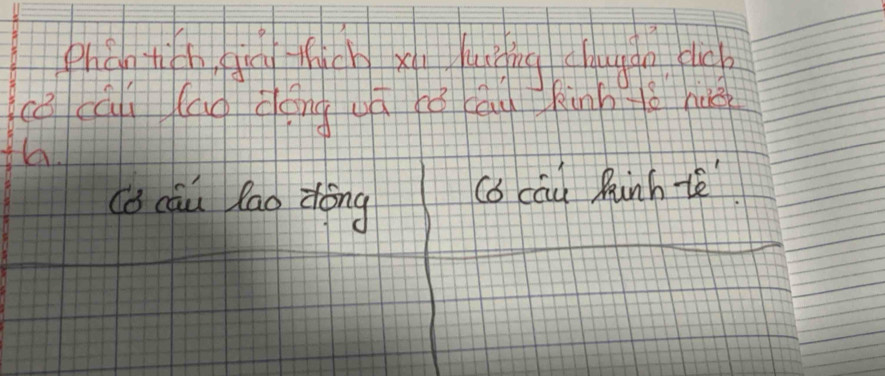 Phân tích, giải thích xu hướng chuyển dịch
cơ cấu lao động và cơ cấu kinh tế nước
ta.
Cơ cấu lao động
Cơ cấu kinh tế.